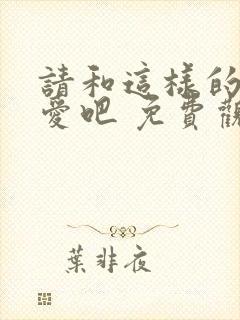 請和這樣的
愛吧 免費觀
葉非夜